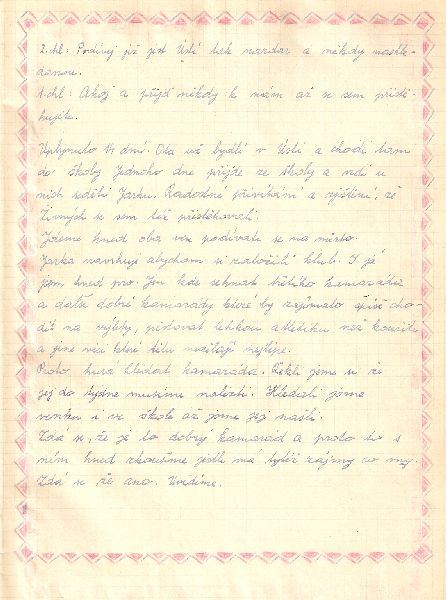 2. chl: Podívej již jest Ústí tak nazdar a někdy nashle-
danou.
1. chl: Ahoj a přijď někdy k nám až se sem přistě-
hujete.
Uplynulo 14 dní. Ota už bydlí v Ústí a chodí tam
do školy. Jednoho dne přijde ze školy a vidí u
nich seděti Jarku. Radostné přivítání a zjištění, že
se sem též přistěhovali.
Jdeme hned oba ven podívati se na město.
Jarka navrhuje abychom si založili klub. I já
jsem hned pro. Jen kde sehnat třetího kamaráda
a další dobré kamarády které by zajímalo spíše cho-
dit na výlety, pěstovat lehkou atletiku než kouřit
a jiné věci které tělu nesvědčí nejlépe.
Proto hurá hledat kamaráda. Řekli jsme si že
jej do týdne musíme nalézti. Hledali jsme
venku i ve škole až jsme jej našli.
Zdá se, že je to dobrý kamarád a proto to s
ním hned zkusíme jestli má tytéž zájmy co my.
Zdá se že ano. Uvidíme.